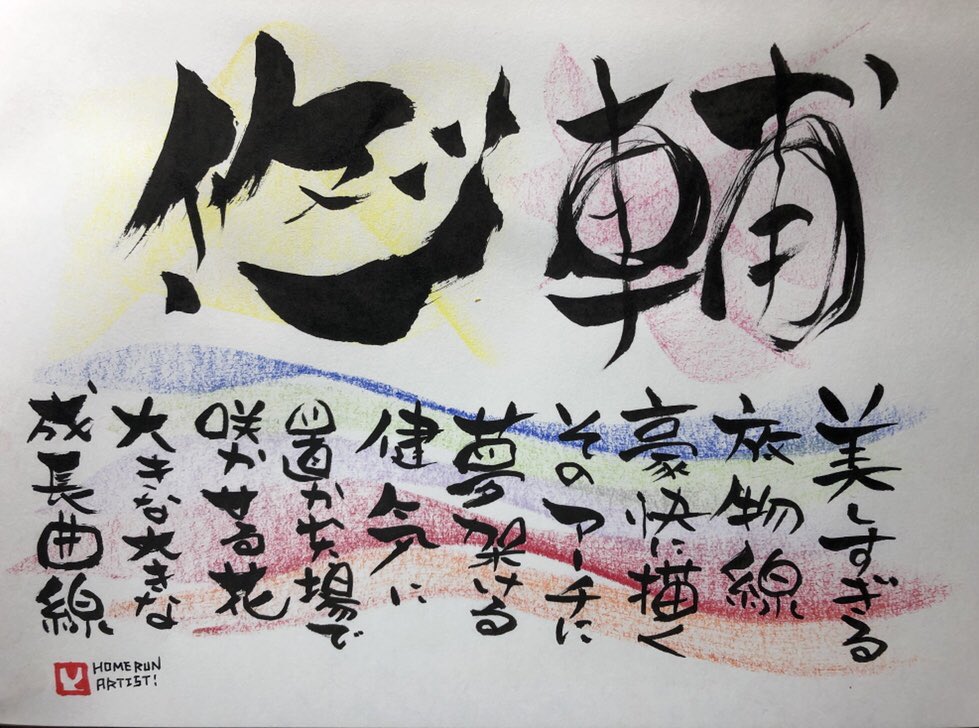 悠輔
美しすぎる
放物線
豪快に描く
そのアーチに
夢架ける
健気に
置かれた場で
咲かせる花
大きな大きな
成長曲線
HOMERUN
ARTIST!